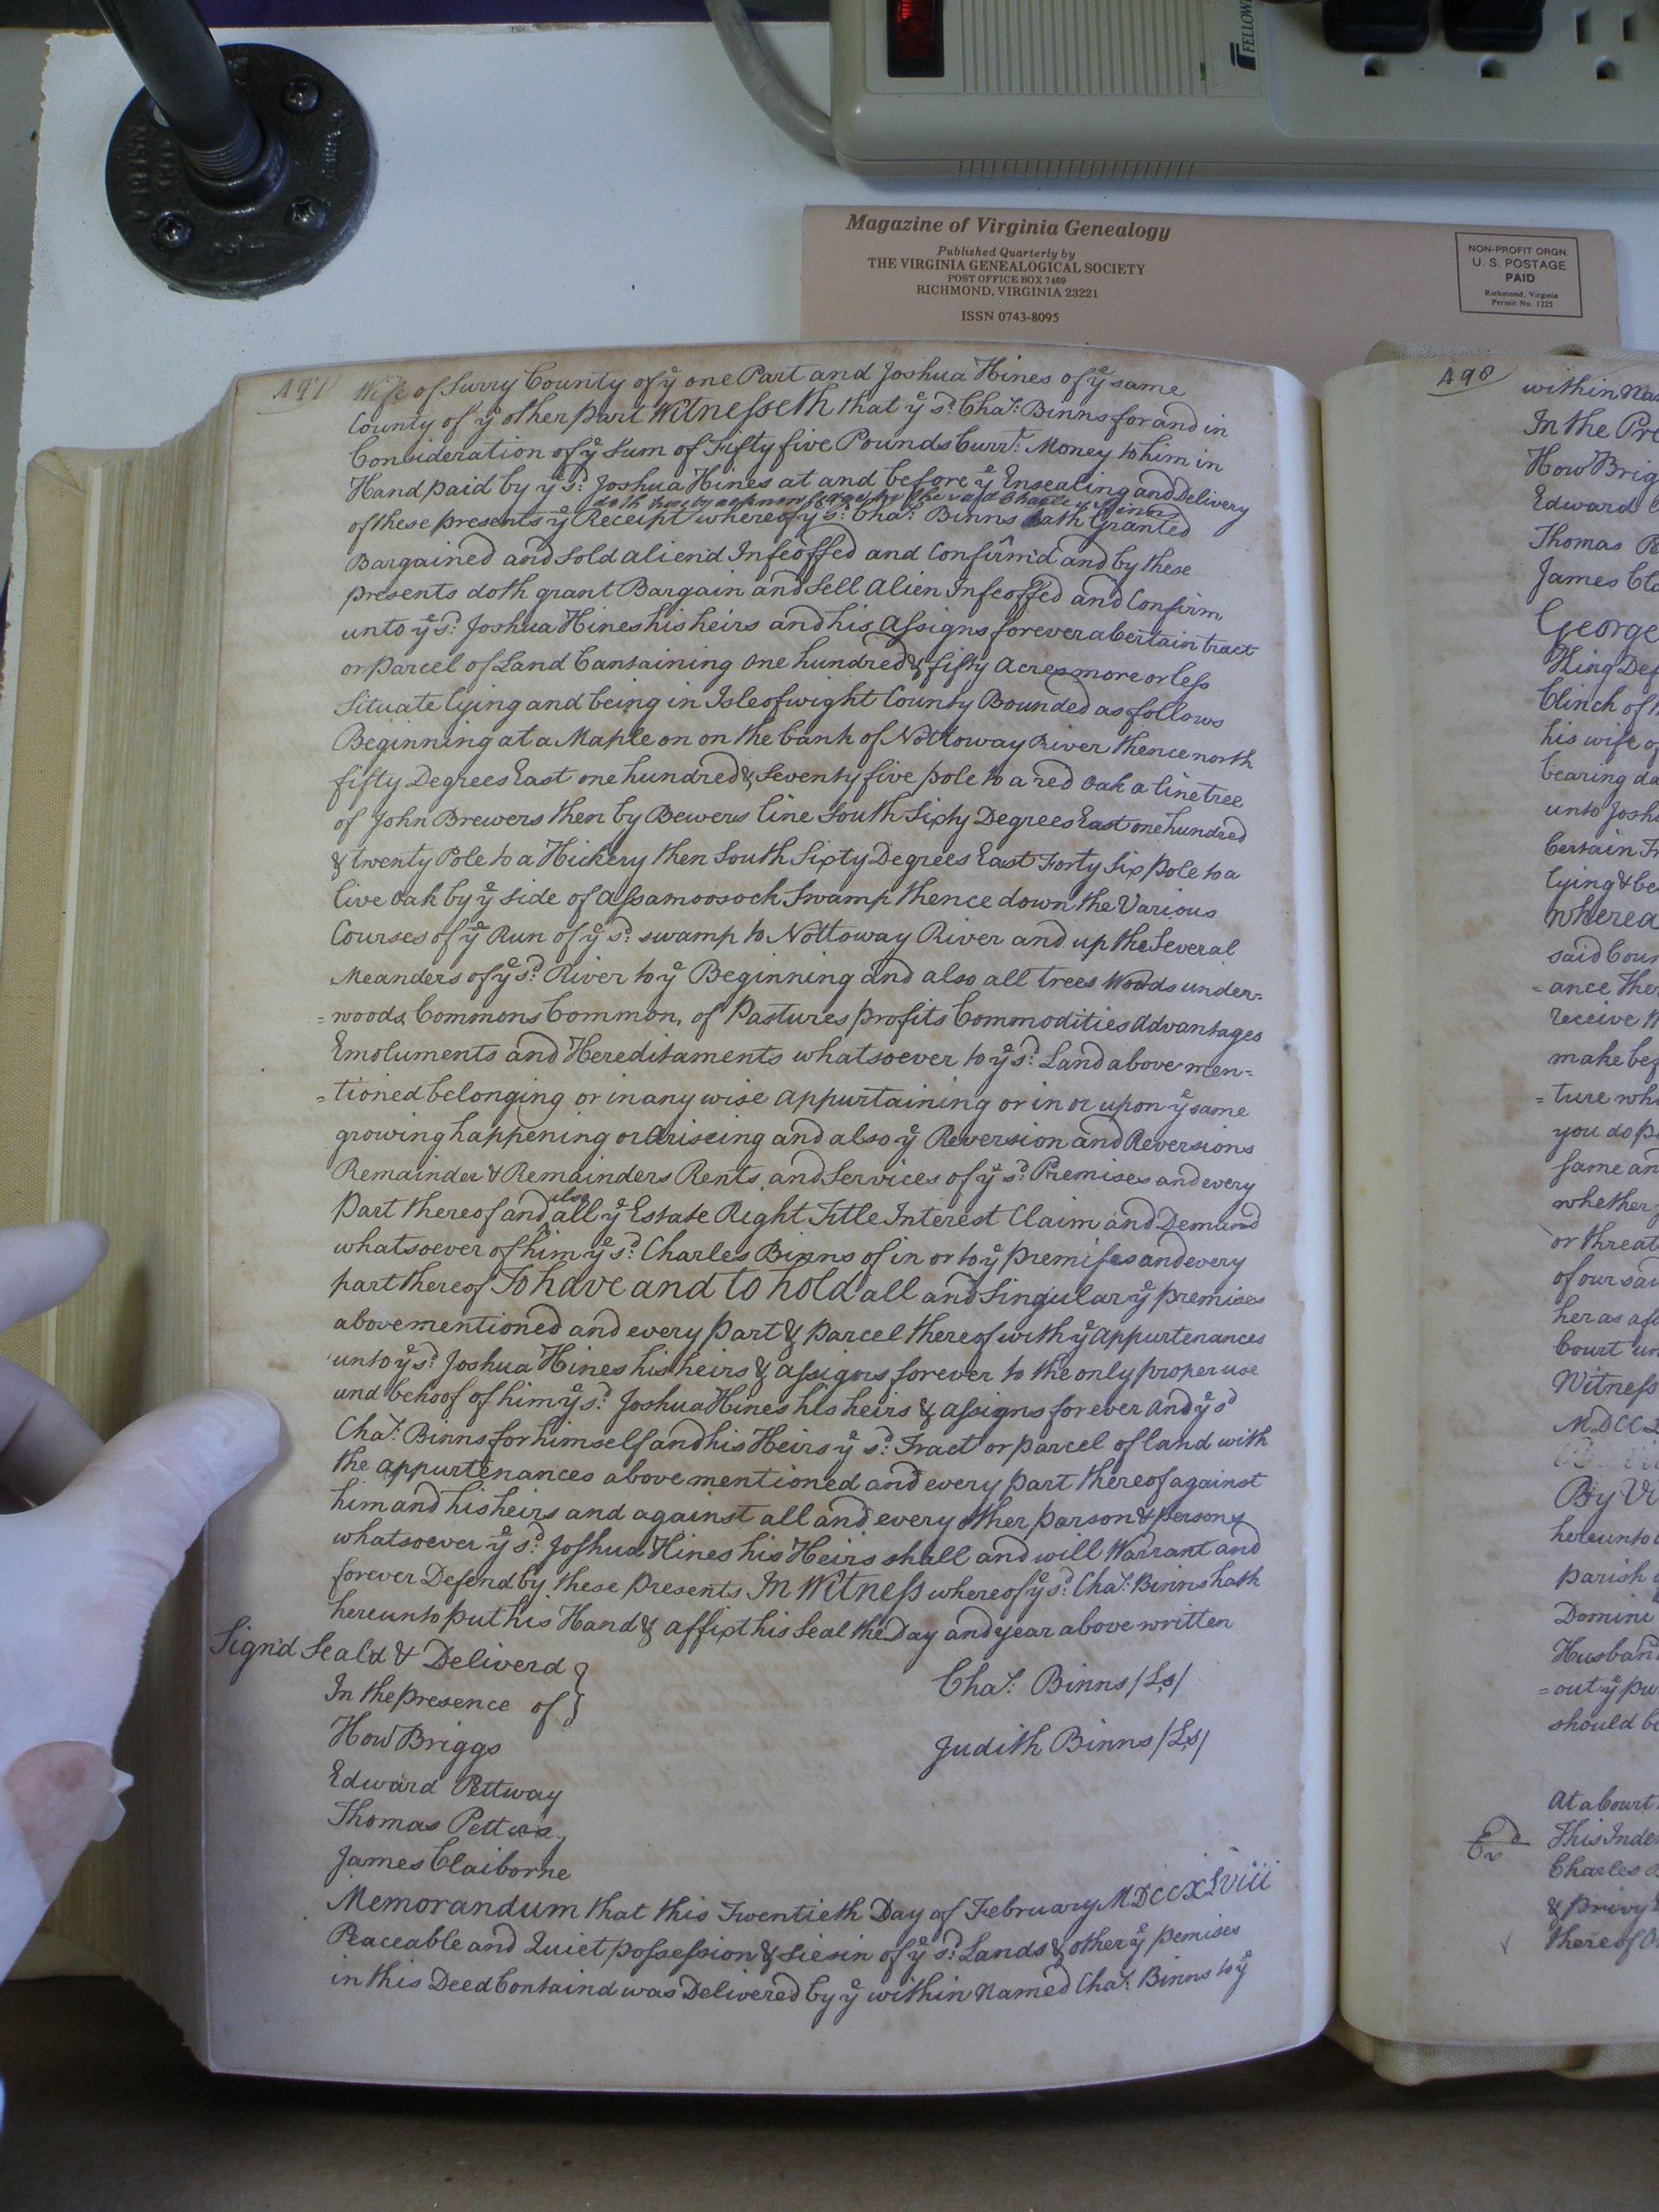 FELLOW
Magazine of Virginia Genealogy
Published Quarterly by
THE VIRGINIA GENEALOGICAL SOCIETY
POST OFFICE BOX 7469
RICHMOND, VIRGINIA 23221
ISSN 0743-8095
NON-PROFIT ORGN.
U. S. POSTAGE
PAID
Richmond, Virginia
Permit No. 1225
497
Wife of Surry County of ye one Part and Joshua Hines of ye same
County of ye other part Witnesseth that ye sd: Chas: Binns for and in
Consideration of ye Sum of Fifty five Pounds Currt: Money to him in
Hand paid by ye sd: Joshua Hines at and before ye Ensealing and Delivery
doth hereby acknowledge he the said Charles Binns
of these presents ye Receipt whereof ye sd: Chas: Binns hath Granted
Bargained and Sold aliend Infeoffed and Confirm'd and by these
presents doth grant Bargain and Sell Alien Infeoffed and Confirm
unto ye sd: Joshua Hines his heirs and his Assigns forever a Certain tract
or parcel of Land Containing one hundred & fifty Acres more or less
Situate lying and being in Isle of wight County Bounded as follows
Beginning at a Maple on on the bank of Nottoway River thence north
fifty Degrees East one hundred & Seventy five pole to a red Oak a line tree
of John Brewers then by Bewers line South Sixty Degrees East one hundred
& twenty Pole to a Hickery then South Sixty Degrees East Forty Six pole to a
live Oak by ye side of Assamoosock Swamp thence down the Various
Courses of ye Run of ye sd: swamp to Nottoway River and up the Several
Meanders of ye sd: River to ye Beginning and also all trees Woods under=
=woods Commons Common, of Pastures profits Commodities Advantages
Emoluments and Hereditaments whatsoever to ye sd: Land above men=
=tioned belonging or in any wise appurtaining or in or upon ye same
growing happening or Ariseing and also ye Reversion and Reversions
Remainder & Remainders Rents and Services of ye sd: Premises and every
also
Part thereof and all ye Estate Right Title Interest Claim and Demand
whatsoever of him ye sd: Charles Binns of in or to ye premises and every
part thereof To have and to hold all and Singular ye premises
above mentioned and every part & parcel thereof with ye Appurtenances
unto ye sd: Joshua Hines his heirs & Assigns forever to the only proper use
and behoof of him ye sd: Joshua Hines his heirs & Assigns for ever And ye sd
Chas: Binns for himself and his Heirs ye sd: Tract or parcel of land with
the appurtenances above mentioned and every part thereof against
him and his heirs and against all and every other parson & persons
whatsoever ye sd: Joshua Hines his Heirs shall and will Warrant and
forever Defend by these presents In Witness whereof ye sd: Chas: Binns hath
hereunto put his Hand & affixt his Seal the Day and year above written
Sign'd Seal'd & Deliverd }
In the presence of }
Chas: Binns /Ls/
How Briggs
Judith Binns /Ls/
Edward Pettway
Thomas Pettway
James Claiborne
Memorandum that this Twentieth Day of February MDCCXLViii
Peaceable and Quiet possession & siesin of ye sd: Lands & other ye pemises
in this Deed Containd was Delivered by ye within Named Chas: Binns to ye
498
within Na
In the Pre
How Brig
Edward
Thomas
James Cla
George
King Def
Clinch of
his wife of
bearing da
unto Josh
Certain
lying & be
Wherea
said Coun
=ance The
receive
make bef
=ture whi
you do
same an
whether
or threat
of our sai
her as afo
Court un
Witness
MDCC
By Vi
hereunto
parish
Domini
Husband
=out ye pu
should be
At a Court
This Inde
Charles
& privy
thereof